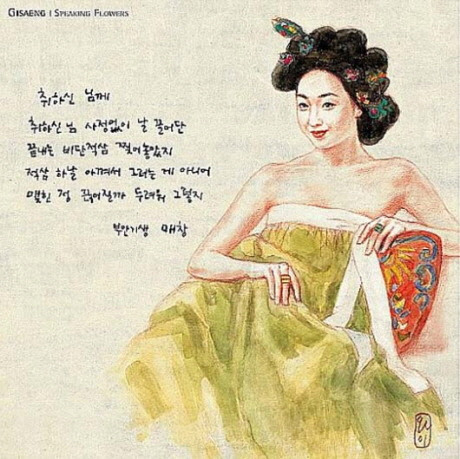 GISAENG | SPEAKING FLOWERS
취하신 님께
취하신 님 사정없이 날 끌어단
끝내는 비단적삼 찢어놓았지
적삼 하날 아껴서 그러는 게 아니어
맺힌 정 끊어질까 두려워 그렇지
부안기생 매창